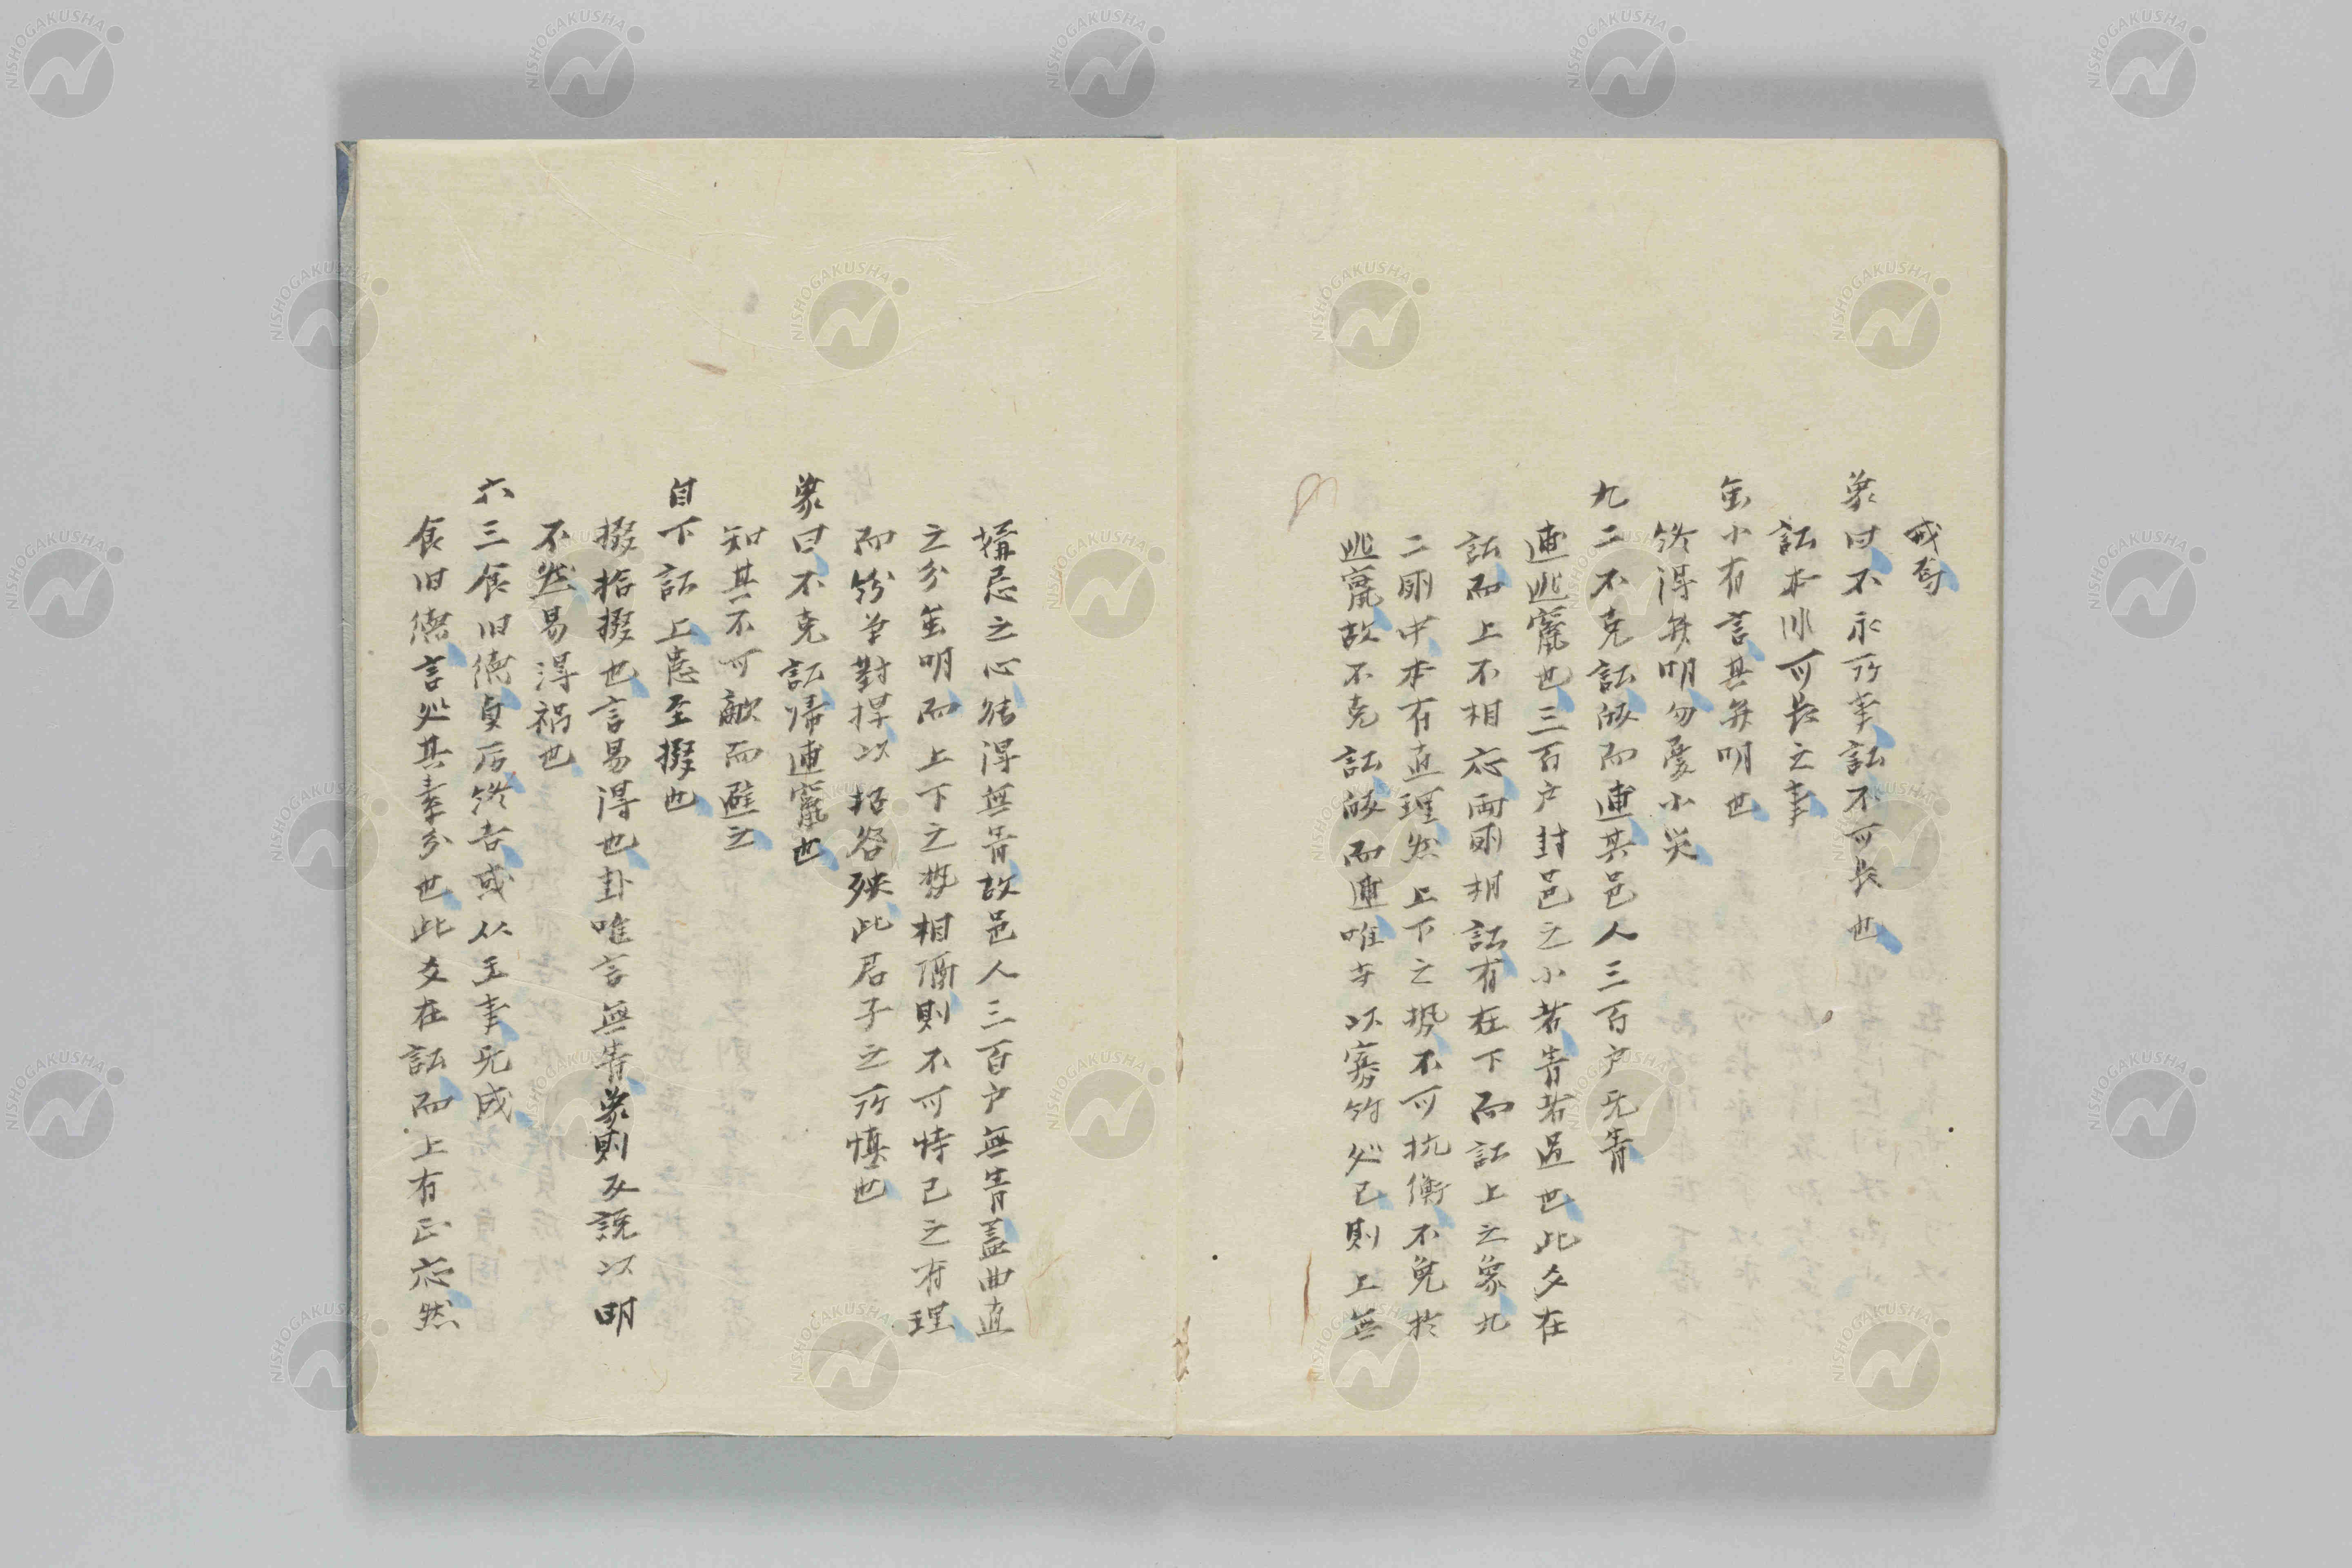 戒辞
象曰不永所事訟不可長也
訟本非可長之事
虽小有言其弁明也
終得弁明勿憂小災
九二不克訟帰而逋其邑人三百户无眚
逋逃竄也三百户封邑之小者眚者過也此爻在
訟而上不相応両剛相訟有在下而訟上之象九
二剛中本有直理然上下之势不可抗衡不免於
逃竄故不克訟帰而逋唯 以寡 必已則上無
猜忌之心特得無眚故邑人三百户無眚蓋曲直
之分虽明而上下之势相隔則不可恃己之有理
而紛争對捍以招咎殃此君子之所慎也
象曰不克訟帰逋竄也
知其不可敵而避之
自下訟上患至掇也
掇拾掇也言易得也卦唯言無眚象則反説以明
不然易得禍也
六三食旧徳貞厉終吉或从王事无成
食旧徳言処其素分也此爻在訟而上有正応然
NISHOGAKUSHA